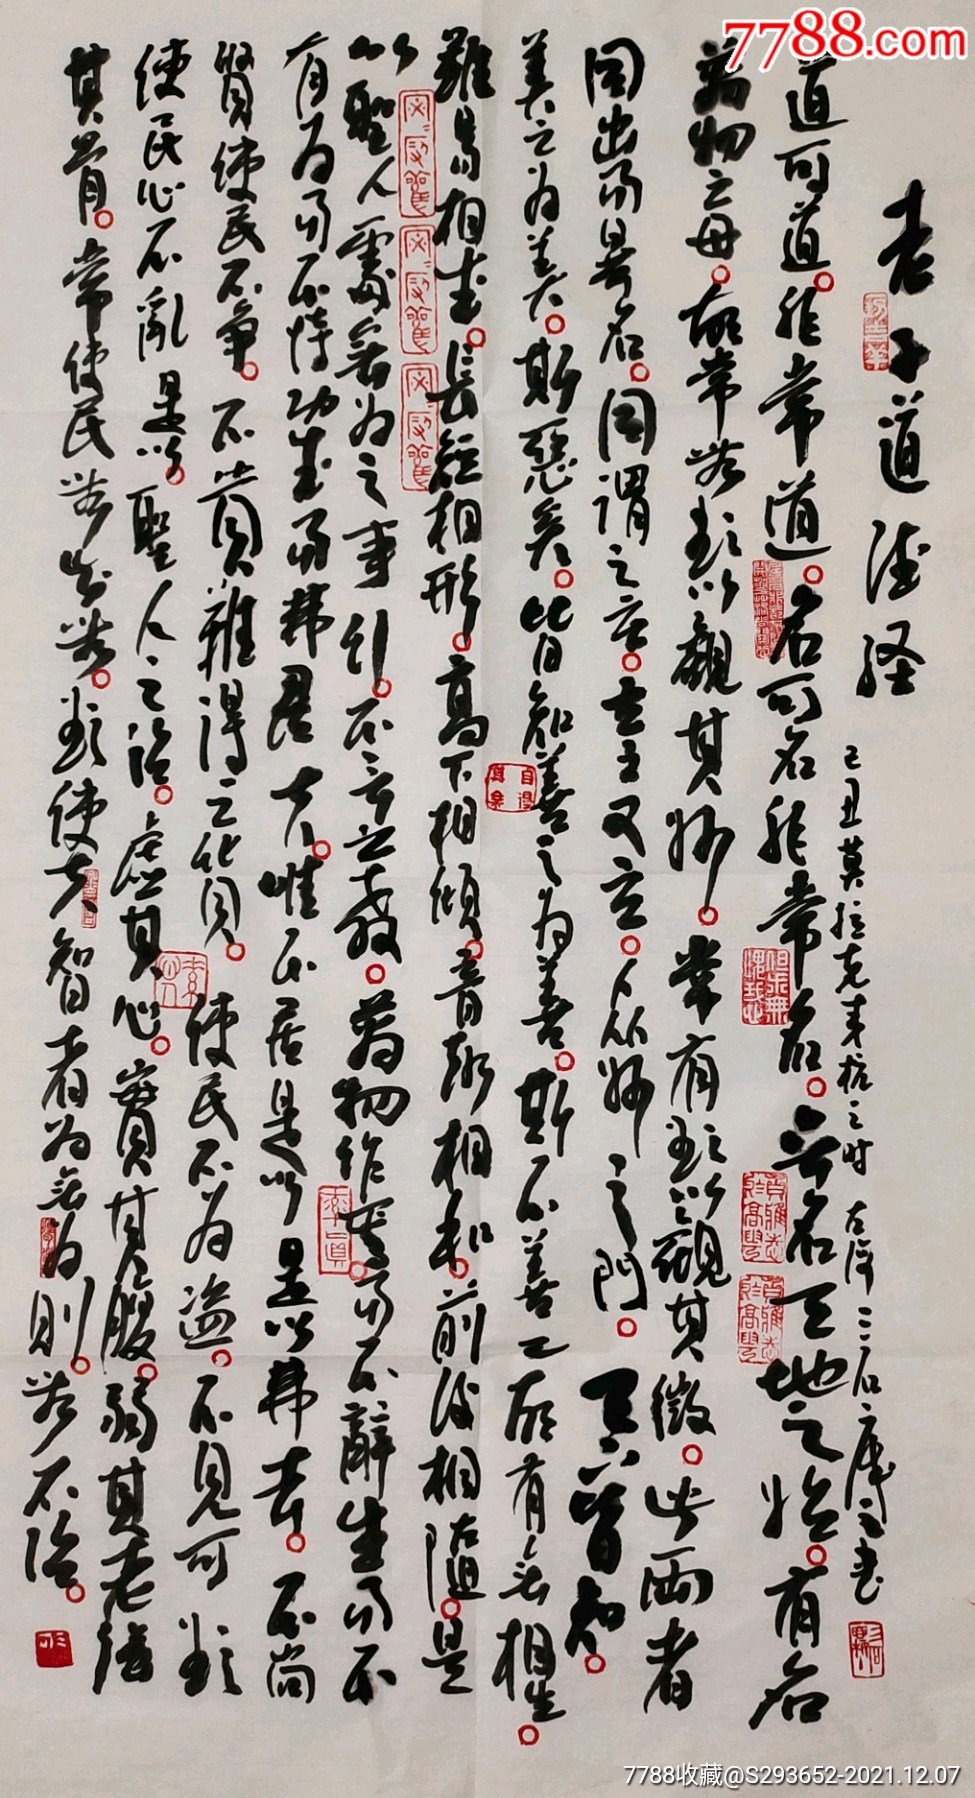 7788.com
老子道德经
己丑莫拉克来杭之时
道可道非常道名可名非常名无名天地之始有名
万物之母故常无欲以观其妙常有欲以观其徼此两者
同出而异名同谓之玄玄之又玄众妙之门天下皆知
美之为美斯恶矣皆知善之为善斯不善已故有无相生
难易相成長短相形高下相倾音聲相和前後相随是
以聖人處無为之事行不言之教萬物作焉而不辭生而不
有为而不恃功成而弗居夫唯不居是以是以弗去不尚
賢使民不争不贵難得之货使民不为盗不见可欲
使民心不亂是以聖人之治虚其心實其腹弱其志強
其骨常使民無知無欲使夫智者为無为则無不治
7788收藏@S293652-2021.12.07